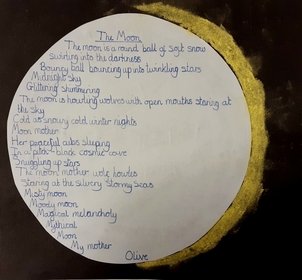 The Moon
The moon is a round ball of soft snow
swirling into the darkness
Bouncy ball bouncing up into twinkling stars
Midnight sky
Glittering shimmering
The moon is howling wolves with open mouths staring at
the sky
Cold at snowy cold winter nights
Moon mother
Her peaceful cubs sleeping
In a pitch-black cosmic cave
Snuggling up stars
The moon mother wolf howls
Staring at the silvery stormy seas
Misty moon
Moody moon
Magical melancholy
Mythical
Moon
My mother
Olive